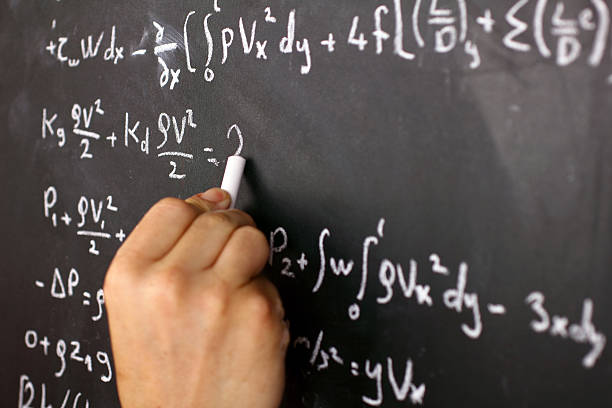 + τ_w W dx - ∂/∂x [∫₀¹ ρV_x² dy + 4f [(L/D)_y + Σ(L/D)_e
K_g ρV²/2 + K_d ρV²/2 = 2
P₁ + ρV₁²/2 + P₂ + ∫w ∫₀¹ ρV_x² dy - 3x dy
-ΔP = ρ
0 + ρz₁g m/s² = yV_x